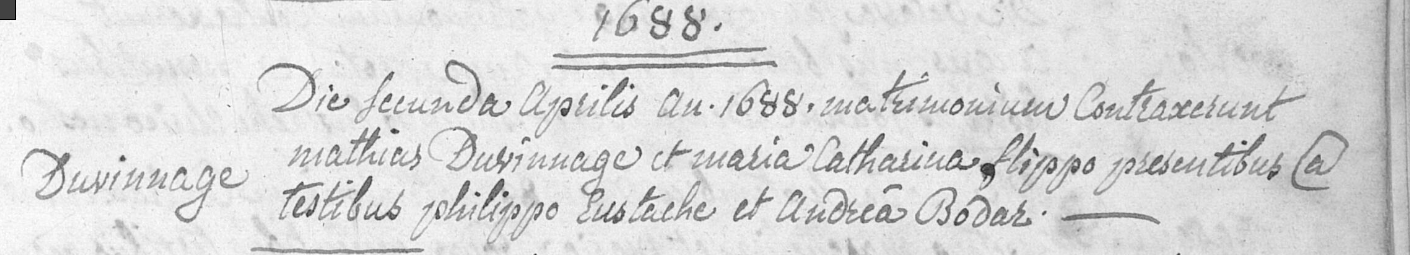 1688.
Die secunda Aprilis an. 1688. matrimonium Contraxerunt
Duvinnage mathias Duvinnage et maria Catharina flippo presentibus @
testibus philippo Eustache et Andreâ Bodar.